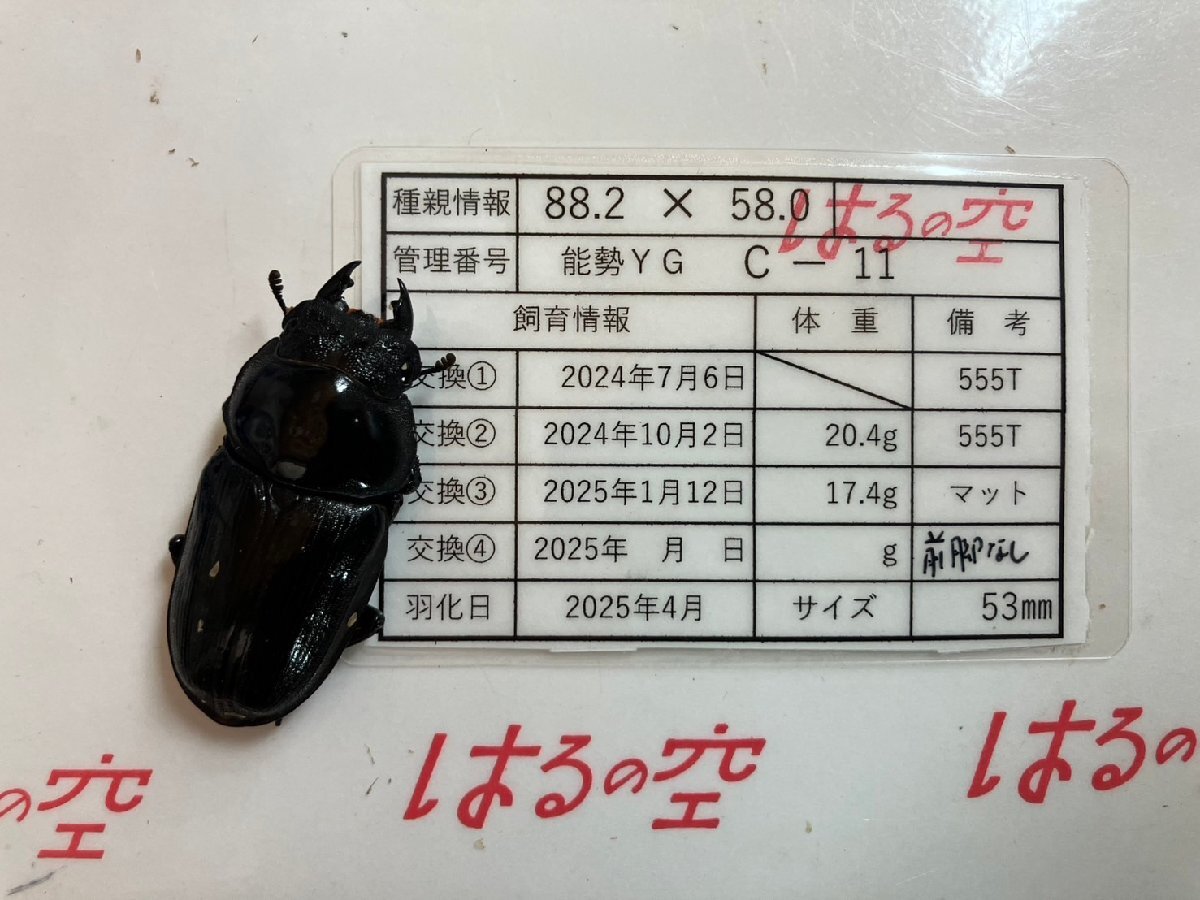 種親情報 88.2 × 58.0
はるの空
管理番号 能勢YG C－11
飼育情報 体重 備考
交換① 2024年7月6日 555T
交換② 2024年10月2日 20.4g 555T
交換③ 2025年1月12日 17.4g マット
交換④ 2025年 月 日 g 前脚なし
羽化日 2025年4月 サイズ 53mm
の空 はるの空 はるの